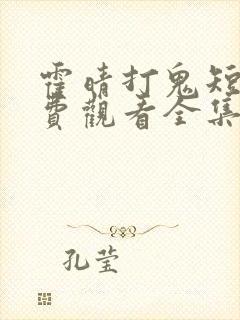 霍晴打鬼短
費觀看全集
孔莹